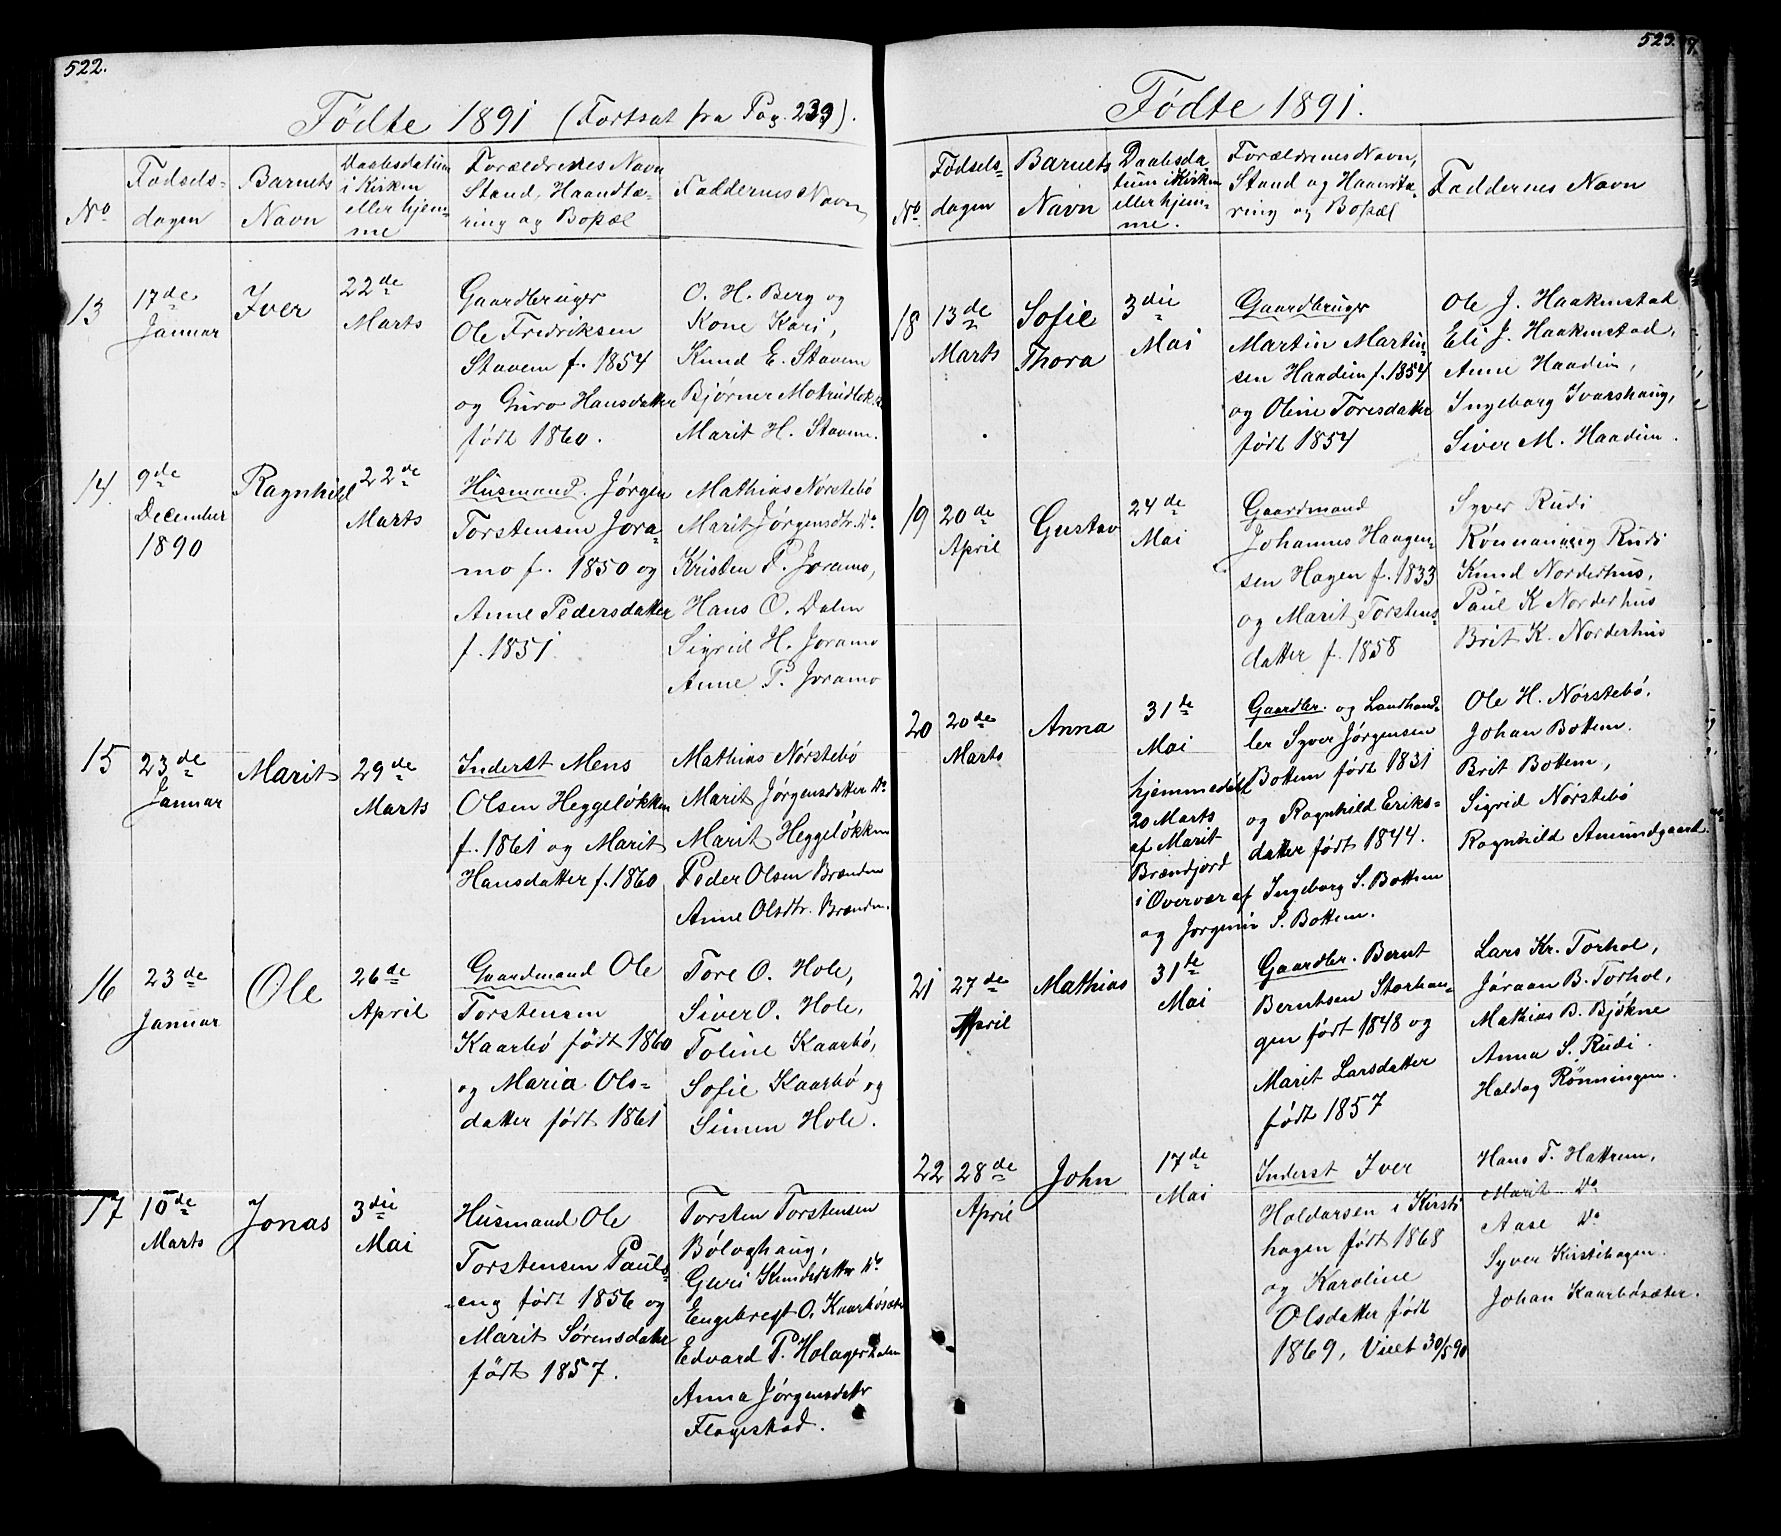 522.
Fødte 1891 (Fortsat fra Pag. 239).
No
Fødsels-
dagen
Barnets
Navn
Daabsdatum
i Kirken
eller hjem-
me
Forældrenes Navn
Stand, Haandtæ-
ring og Bopæl
Faddernes Navn
13
17de
Januar
Iver
22de
Marts
Gaardbruger
Ole Fredriksen
Stavem f. 1854
og Guro Hansdatter
født 1860.
O. H. Berg og
Kone Kari,
Knud E. Stavem
Bjørner
Marit H. Stavem.
14.
9de
December
1890
Ragnhild
22de
Marts
Husmand. Jørgen
Torstensen Jora-
mo f. 1850 og
Anne Pedersdatter
f. 1851.
Mathias Nørstebø
Marit Jørgensdtr. Do.
Kristen P. Joramo,
Hans O. Dalm
Sigrid H. Joramo
Anne P. Joramo
15
23de
Januar
Marit
29de
Marts
Inderst Mens
Olsen Heggeløkken
f. 1861 og Marit
Hansdatter f. 1860
Mathias Nørstebø
Marit Jørgensdatter Do
Marit Heggeløkken
Peder Olsen Brænden
Anne Olsdtr. Brænden.
16
23de
Januar
Ole
26de
April
Gaardmand Ole
Torstensen
Kaarbø født 1860
og Maria Ols-
datter født 1861
Tore O. Hole,
Siver O. Hole,
Toline Kaarbø,
Sofie Kaarbø og
Simen Hole.
17
10de
Marts
Jonas
3die
Mai
Husmand Ole
Torstensen Pauls-
eng født 1856 og
Marit Sørensdatter
født 1857.
Torsten Torstensen
Bøloghaug,
Guri Knudsdatter Do
Engebregt O. Kaarbøsæter
Edvard P. Holager
Anna Jørgensdatter
Flagestad.
523.
Fødte 1891.
No
Fødsels-
dagen
Barnets
Navn
Daabsda
tum i Kirken
eller hjem-
me.
Forældrenes Navn,
Stand og Haandtæ-
ring og Bopæl
Faddernes Navn
18
13de
Marts
Sofie
Thora
3die
Mai
Gaardbruger
Martin Martin-
sen Haadem f. 1854
og Oline Toresdatter
født 1854
Ole J. Haakenstad
Eli J. Haakenstad,
Anne Haadem,
Ingeborg Ivarshaug,
Siver M. Haadem.
19
20de
April
Gustav
24de
Mai
Gaardmand
Johannes Haagen-
sen Hagen f. 1833
og Marit Torstens-
datter f. 1858
Syver Rudi
Rønnanaug Rudi
Knud Norderhus,
Paul K Norderhus
Brit K. Norderhus
20
20de
Marts
Anna
31de
Mai
hjemmedøbt
20 Marts
af Marit
Brændjord
i Overvær af Ingeborg S. Bottem
og Jørgine S. Bottem.
Gaardbr. og Landhand-
ler Syver Jørgensen
Bottem født 1831
og Ragnhild Eriks-
datter født 1844.
Ole H. Nørstebø,
Johan Bottem.
Brit Bottem,
Sigrid Nørstebø
Ragnhild Amundgaard.
21
27de
April
Mathias
31te
Mai
Gaardbr. Bernt
Berntsen Storhau-
gen født 1848 og
Marit Larsdatter
født 1857
Lars Kr. Torhol,
Jøraan B. Torhol,
Mathias B. Bjøkne
Anna S. Rudi.
Haldog Rønningen.
22
28de
April
John
17de
Mai
Inderst Iver
Haldorsen i Kirsti
hagen født 1868
og Karoline
Olsdatter født
1869, Viet 30/5 90
Hans T. Hattrem,
Marit Do
Aase Do
Syver Kirstihagen.
Johan Kaarbøsæter.